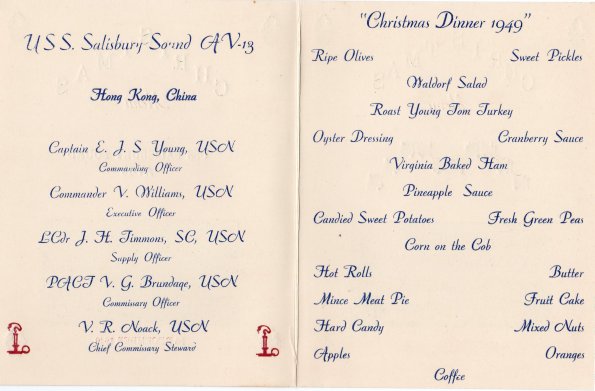 U.S.S. Salisbury Sound AV-13
Hong Kong, China
Captain E. J. S Young, USN
Commanding Officer
Commander V. Williams, USN
Executive Officer
LCdr J. H. Timmons, SC, USN
Supply Officer
PACT V. G. Brundage, USN
Commissary Officer
V. R. Noack, USN
Chief Commissary Steward
"Christmas Dinner 1949"
Ripe Olives Sweet Pickles
Waldorf Salad
Roast Young Tom Turkey
Oyster Dressing Cranberry Sauce
Virginia Baked Ham
Pineapple Sauce
Candied Sweet Potatoes Fresh Green Peas
Corn on the Cob
Hot Rolls Butter
Mince Meat Pie Fruit Cake
Hard Candy Mixed Nuts
Apples Oranges
Coffee